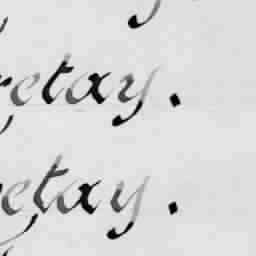 retay.
etay.